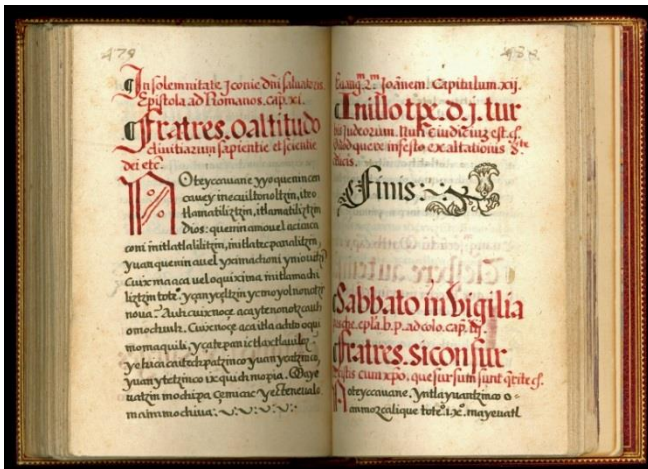 479
In solemnitate Iconie dñi saluatoris
Epistola ad Romanos. cap. xi.
Fratres. o altitudo
diuitiarum sapientie et scientie
dei etc.
Noteyccauane yyo quenin cen
cauey inecuiltonoltzin, iteo
tlamatiliztzin, itlamatiliztzin
dios: quenin amo uel acicaca
coni initlatlalilitzin, initlatecpanalitzin,
yuan quenin auel yximachoni yniouh
Cuix maaca uel oquixima initlamachi
liztzin totº. ycan yceltzin ycmoyolnonotz
noua: Auh cuixnoçe aca ytenonotzcauh
omochiuh. Cuixnoçe aca itla achto oqui
momaquili, ycatepan ictlaxtlauilez
yehica caitechpatzinco yuan ycatzinco,
yuan ytetzinco ixquich mopia. Maye
uatzin mochipa cemicac yecteneualo
maimmochiua.
Ioãnem. Capitulum. xij.
In illo tpe. d. j. tur
bis Judeorum. Nunc iudicium est. cf.
Quod quere in festo exaltationis
crucis.
Finis:
Sabbato in Vigilia
pasche. epla. b. p. ad colo. cap. iij.
Fratres. si consur
rexistis cum xpo, que sursum sunt qrite cf.
Noteyccauane. Yntla yuantzinco o-
ammozcalique totº. ma yeuatl